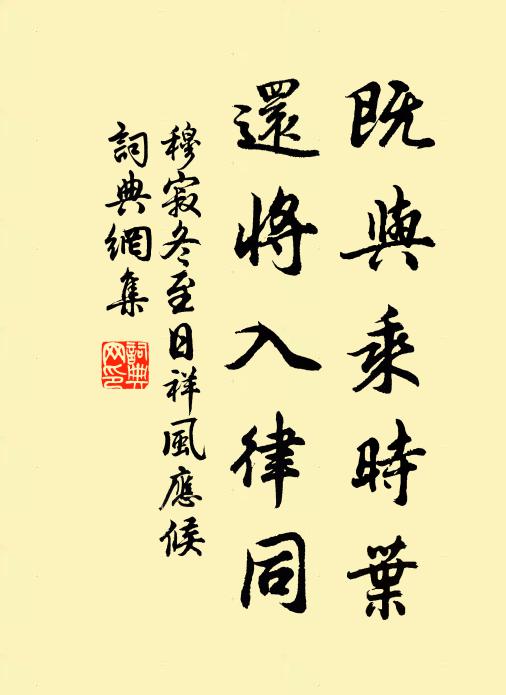 既與乘時葉
還將入律同
穆寂冬至日祥風應候
詞典網集
詞典网印